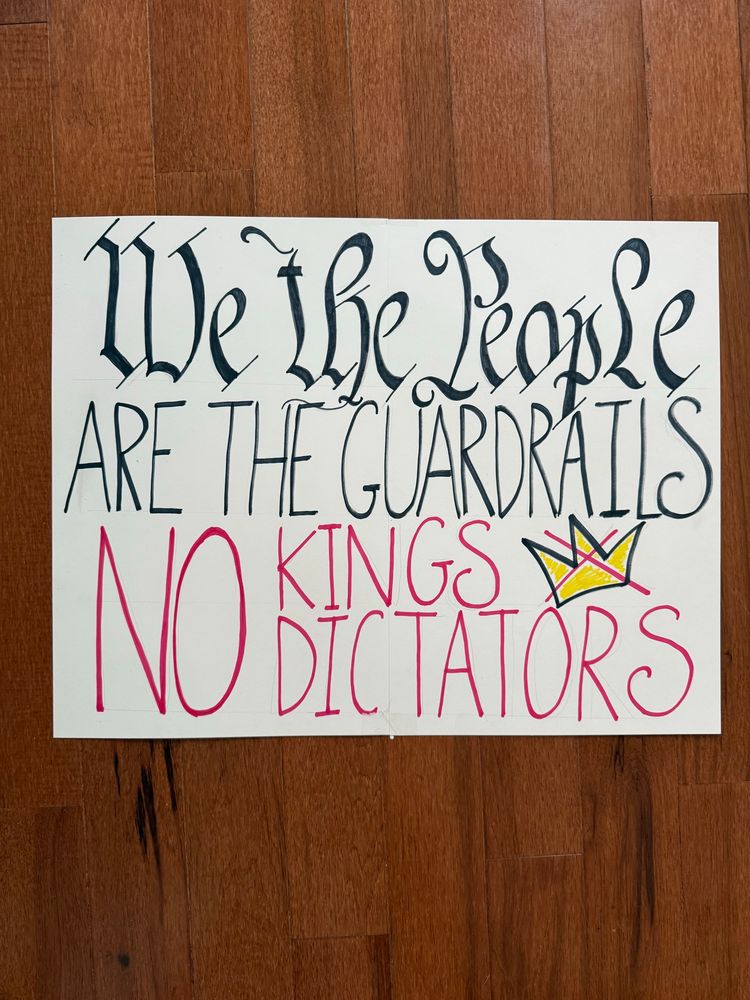 We the People
ARE THE GUARDRAILS
NO KINGS
DICTATORS